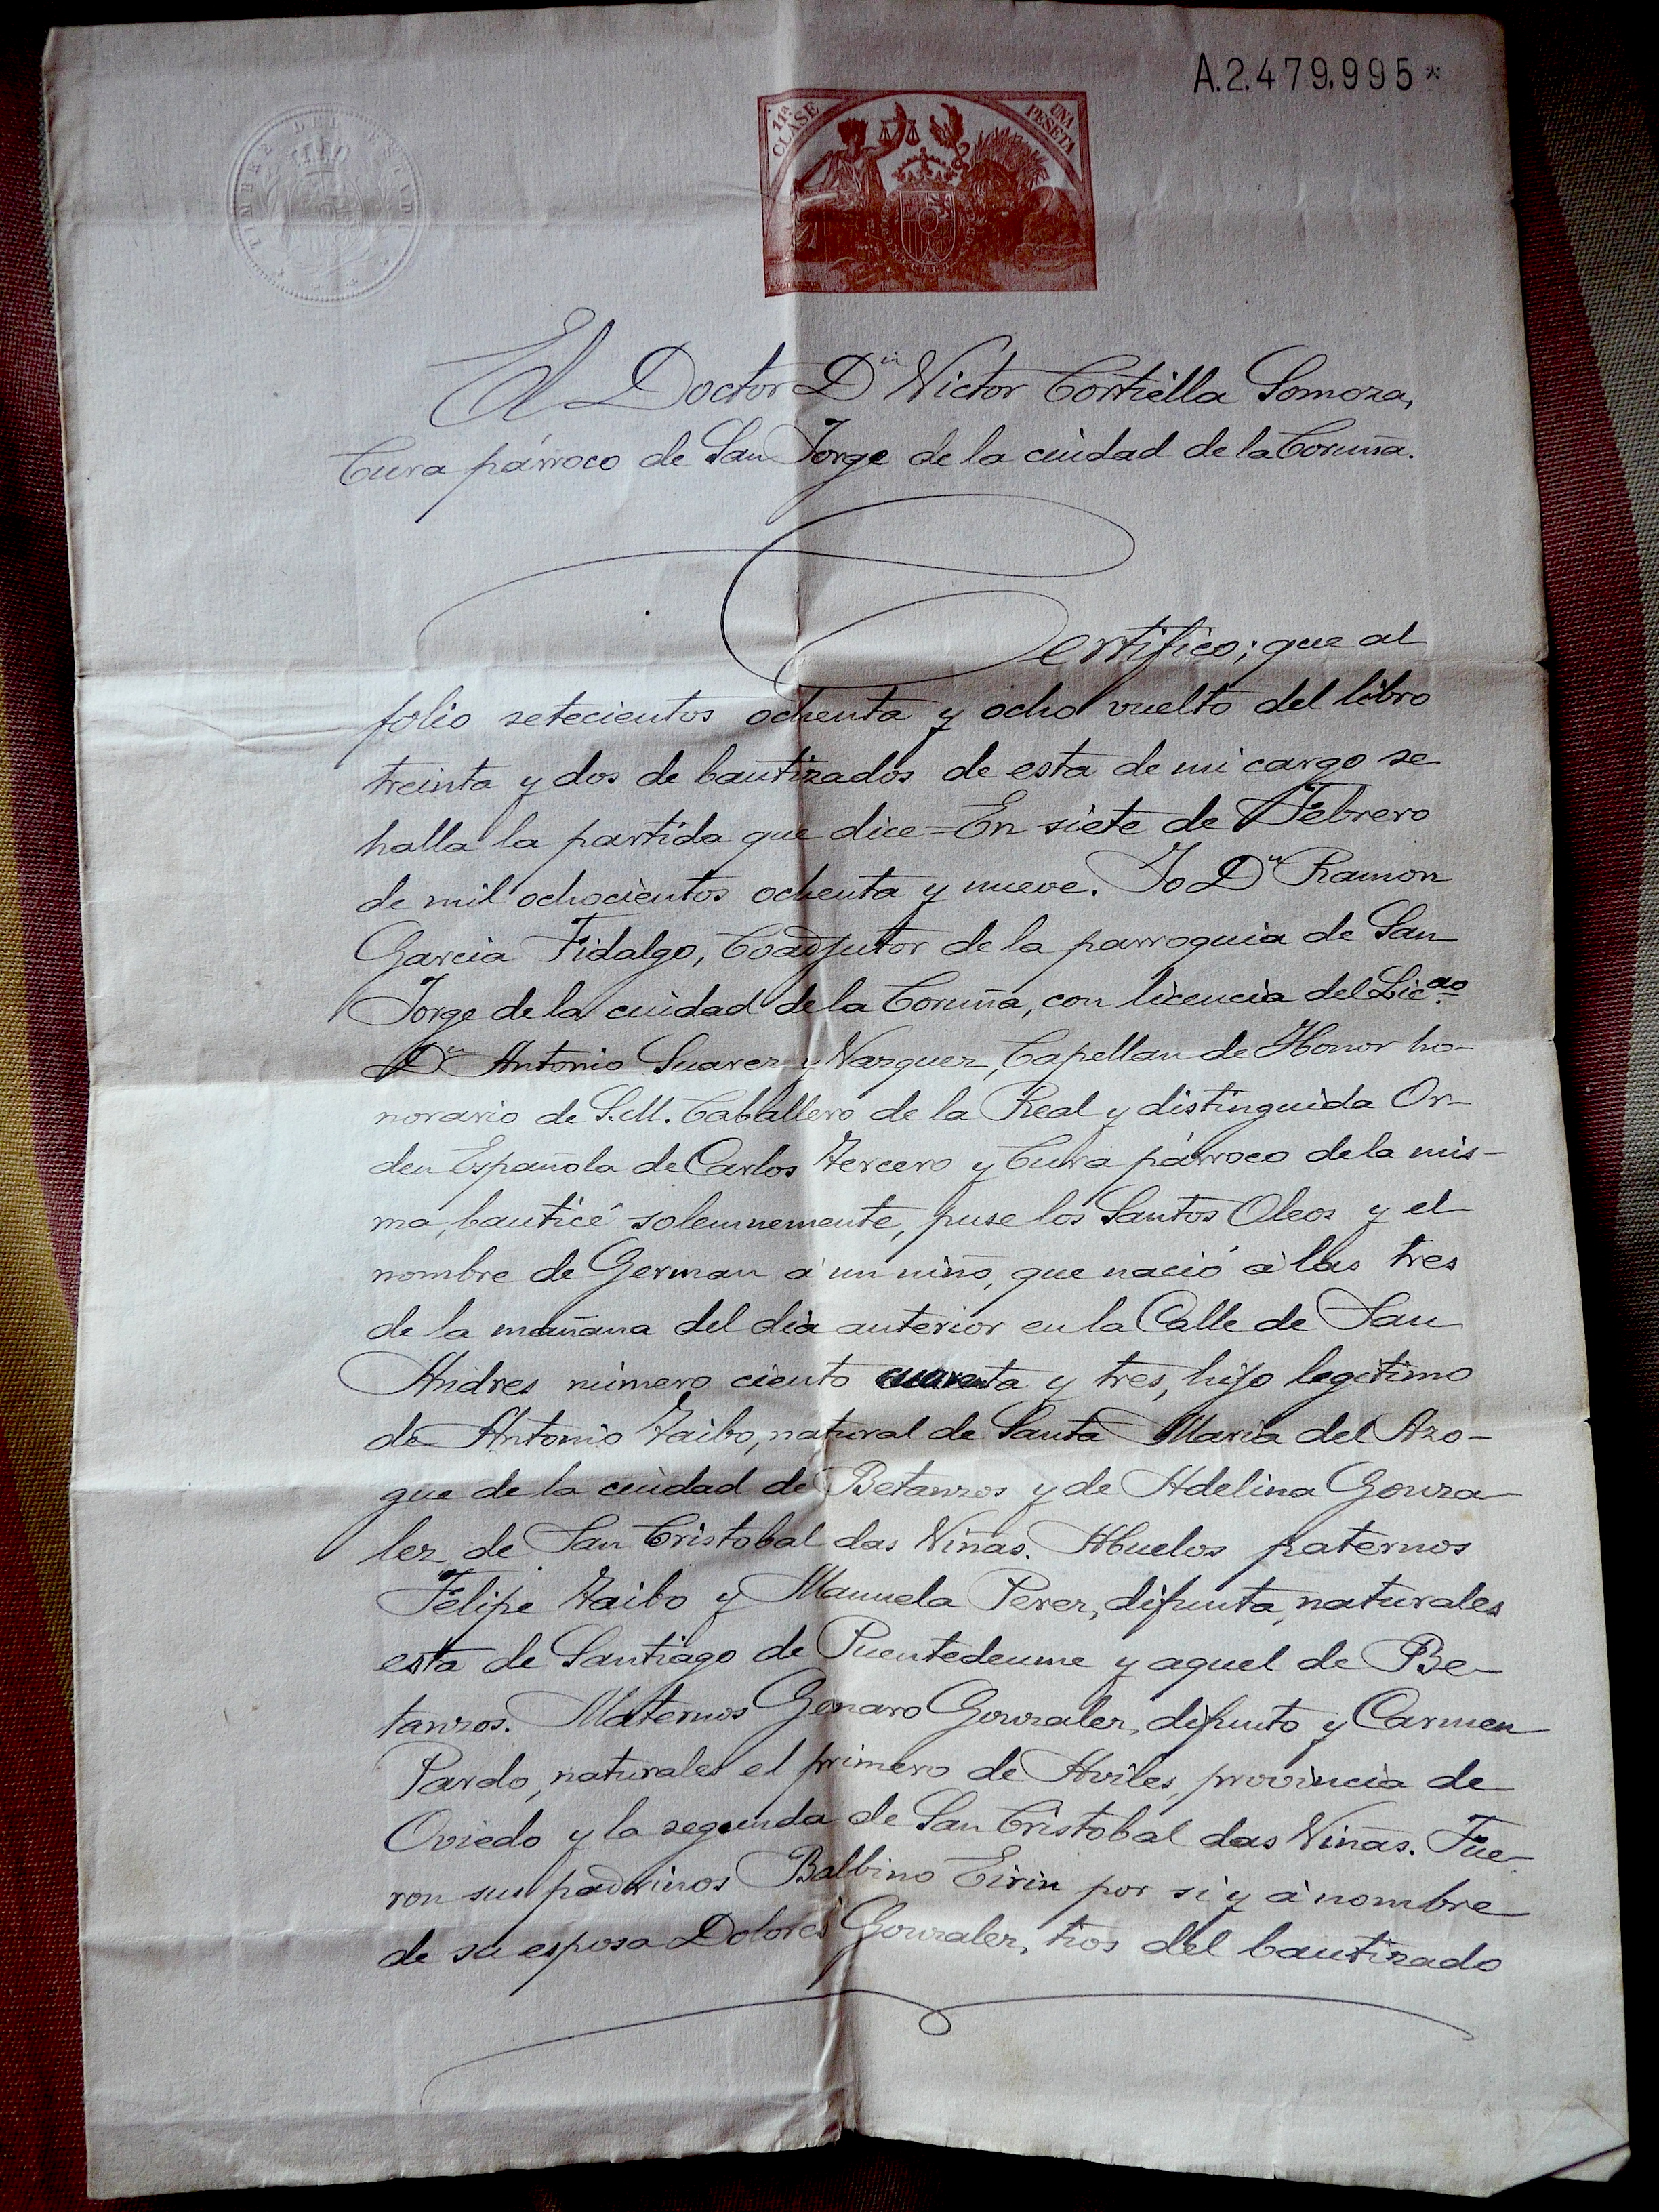 A.2.479.995*
TIMBRE DEL ESTADO
11ª CLASE
UNA PESETA
El Doctor Dⁿ Victor Cortiella Somoza,
Cura párroco de San Jorge de la ciudad de la Coruña.
Certifico; que al
folio setecientos ochenta y ocho vuelto del libro
treinta y dos de bautizados de esta de mi cargo se
halla la partida que dice = En siete de Febrero
de mil ochocientos ochenta y nueve. Yo Dⁿ Ramon
Garcia Fidalgo, Coadjutor de la parroquia de San
Jorge de la ciudad de la Coruña, con licencia del Licᵈᵒ
Dⁿ Antonio Suarez y Vazquez, Capellan de Honor ho-
norario de S.M. Caballero de la Real y distinguida Or-
den Española de Carlos Tercero y Cura párroco de la mis-
ma, bauticé solemnemente, puse los Santos Oleos y el
nombre de German á un niño, que nació á las tres
de la mañana del dia anterior en la Calle de San
Andres número ciento cuarenta y tres, hijo legitimo
de Antonio Taibo, natural de Santa Maria del Azo-
gue de la ciudad de Betanzos y de Adelina Gonza-
lez de San Cristobal das Viñas. Abuelos paternos
Felipe Taibo y Manuela Perez, difunta, naturales
esta de Santiago de Puentedeume y aquel de Be-
tanzos. Maternos Genaro Gonzalez, difunto y Carmen
Pardo, naturales el primero de Aviles, provincia de
Oviedo y la segunda de San Cristobal das Viñas. Fue-
ron sus padrinos Balbino Eirin por si y á nombre
de su esposa Dolores Gonzalez, tios del bautizado